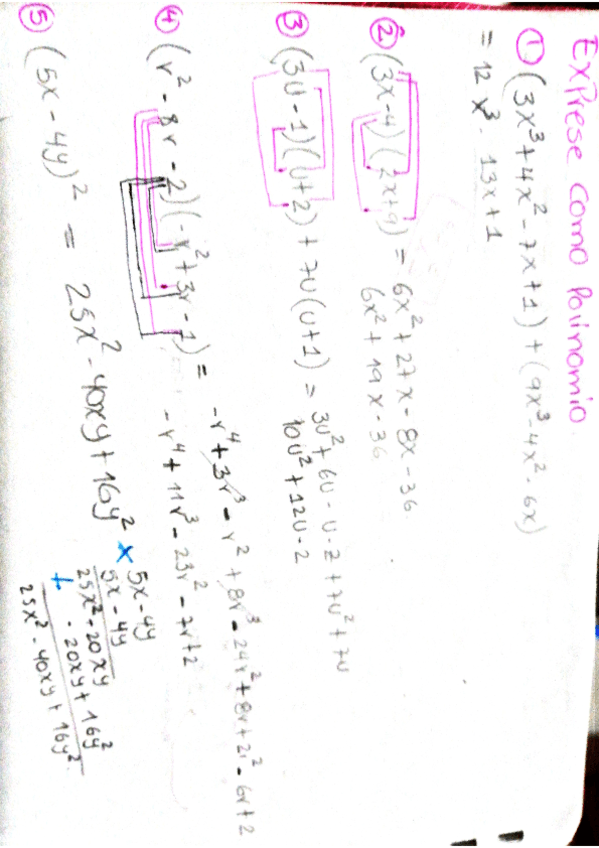 Exprese como Poinomio.
① (3x³+4x²-7x+1)+(9x³-4x²-6x)
= 12x³-13x+1
② (3x-4)(2x+9) = 6x²+27x-8x-36.
6x²+19x-36
③ (3u-1)(u+2)+7u(u+1) = 3u²+6u-u-2+7u²+7u
10u²+12u-2
④ (r²-8r-2)(-r²+3r-1) = -r⁴+3r³-r²+8r³-24r²+8r+2r²-6r+2
-r⁴+11r³-23r²-2r+2
⑤ (5x-4y)² = 25x²-40xy+16y²
x 5x-4y
5x-4y
25x²-20xy
+ -20xy+16y²
25x²-40xy+16y².